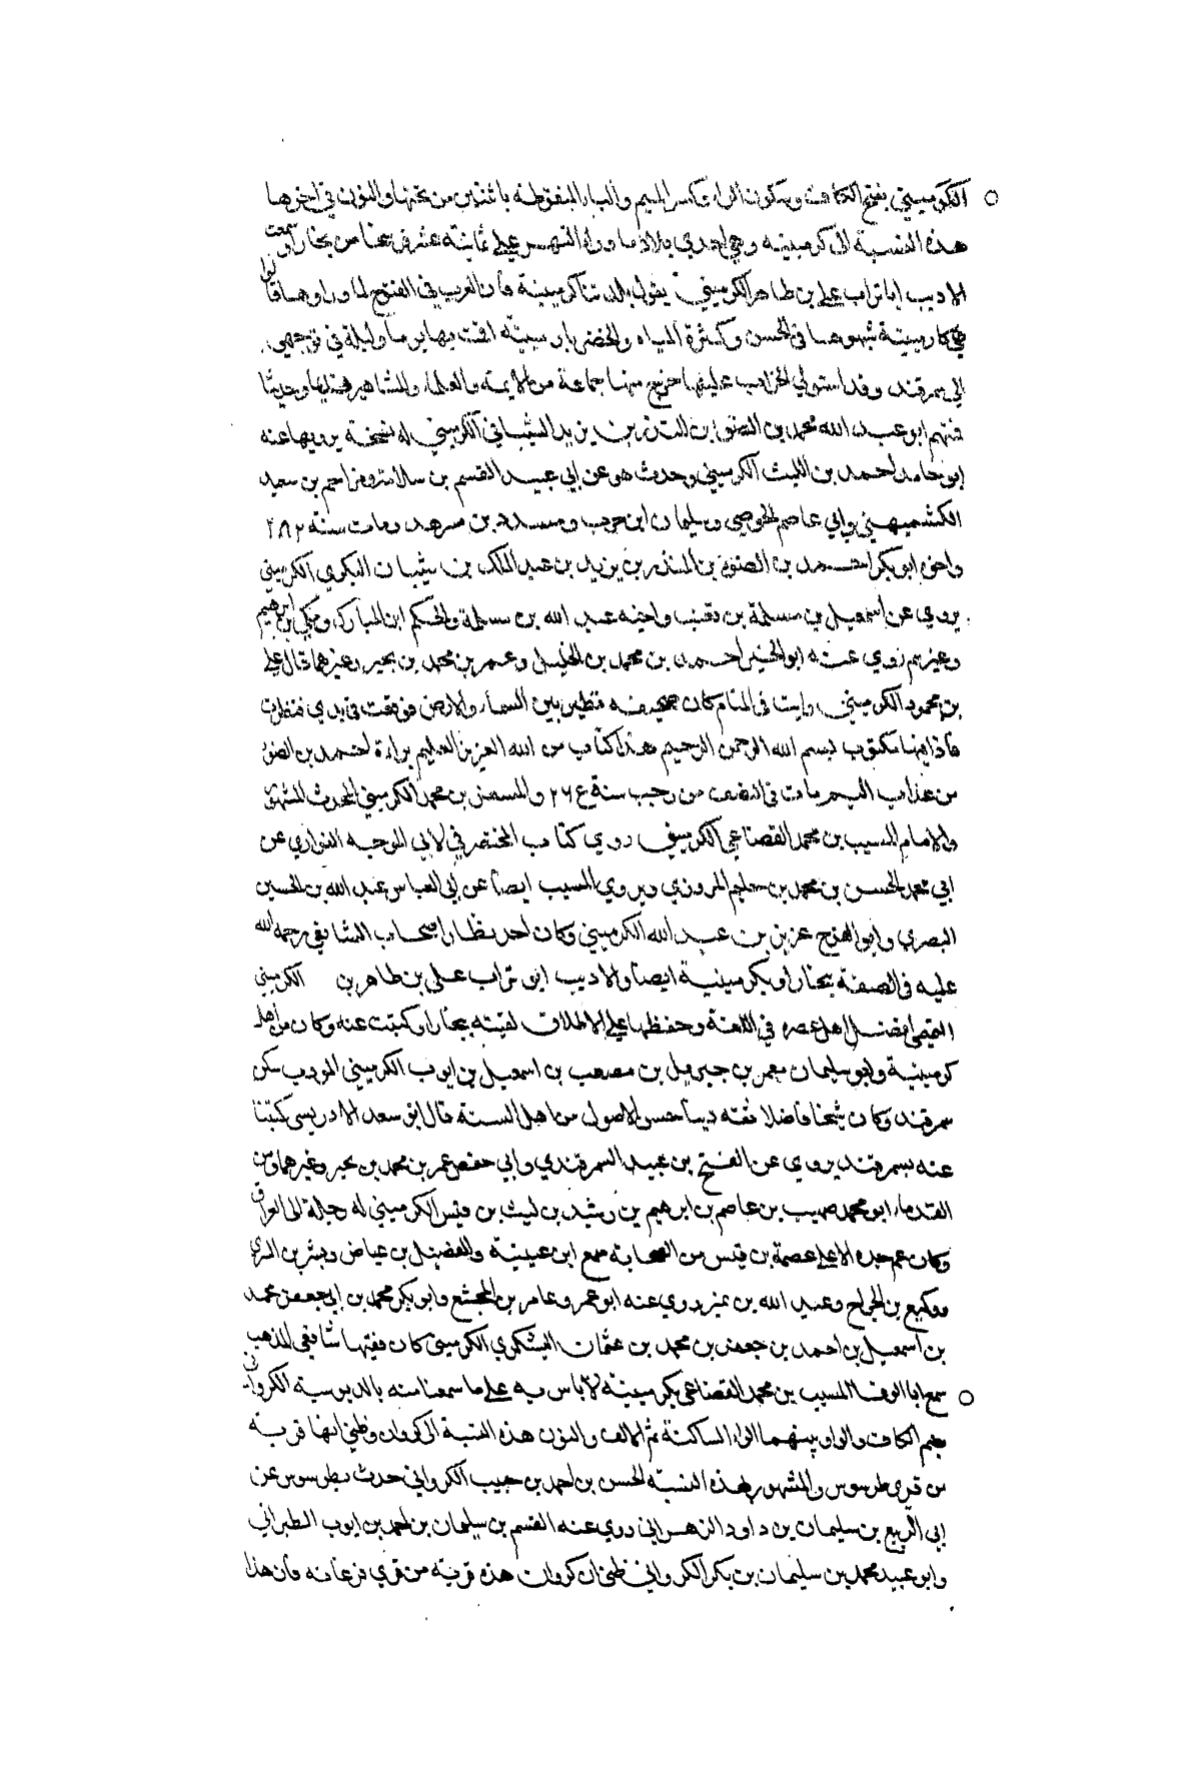 الكرميني بفتح الكاف وسكون الراء وكسر الميم والياء المنقوطة باثنتين من تحتها والنون في اخرها
هذه النسبة الى كرمينيه وهي احدى بلاد ما وراء النهر على ثمانية عشر فرسخا من بخارا سمعت
الاديب ابا تراب علي بن طاهر الكرميني يقول بلدتنا كرمينية فان العرب في الفتوح لما وراوها قالوا
هي كارمينية شبهوها في الحسن وكثرة المياه والخضر بارمينيه اقمت بها يوما وليلة في توجهي
الى سمرقند وقد استولى الخراب عليها خرج منها جماعة من الايمة والعلماء والمشاهير قديما وحديثا
فمنهم ابو عبد الله محمد بن الضو ابن المنذر بن يزيد الشيباني الكرميني له نسخة يرويها عنه
ابو حامد احمد بن الليث الكرميني وحدث هو عن ابي عبيد القسم بن سلام بن سعيد
الكشميهني وابي عاصم الحوضي وسليمان ابن حرب ومسدد بن مسرهد ومات سنة ٢٨٢
واخوه ابو بكر احمد بن الضو بن المنذر بن يزيد بن عبد الملك بن شيبان البكري الكرميني
يروي عن اسمعيل بن مسلمة بن قعنب واخيه عبد الله بن مسلمة والحكم ابن المبارك ومكي بن ابرهيم
وغيرهم روى عنه ابو الخير احمد بن محمد بن الخليل وعمر بن محمد بن بحير وغيرهما قال علي
بن محمود الكرميني رايت في المنام كان صحيفة تطير بين السماء والارض فوقعت في يدي فنظرت
فاذا فيها مكتوب بسم الله الرحمن الرحيم هذا كتاب من الله العزيز العليم براءة لاحمد بن الضو
من عذاب اليم مات في النصف من رجب سنة ٢٦٤ بن محمد الكرميني المحدث المشهور
والامام المسيب بن محمد القضاعي الكرميني روى كتاب المختصر في لابي الموجه الفزاري عن
ابي محمد الحسن بن محمد بن حليم المروزي ويروي المسيب ايضا عن ابي العباس عبد الله بن الحسين
البصري وابو الفرج عزيز بن عبد الله الكرميني وكان احد نظار اصحاب الشافعي رحمه الله
عليه في الصفة بخارا وبكرمينية ايضا والاديب ابو تراب علي بن طاهر بن الكرميني
التميمي افضل اهل عصره في اللغة وحفظها على الاطلاق لقيته ببخارا وكتبت عنه وكان من اهل
كرمينية وابو سليمان معمر بن جبريل بن مصعب بن اسمعيل بن ايوب الكرميني المودب سكن
سمرقند وكان شيخا فاضلا ثقة دينا حسن الاصول من اهل السنة قال ابو سعد الادريسي كتبنا
عنه بسمرقند يروي عن الفتح بن عبيد السمرقندي وابي حفص عمر بن محمد بن بحير وغيرهما ومن
القدماء ابو محمد صهيب بن عاصم بن ابرهيم بن رشيد بن ليث بن قيس الكرميني له رحلة الى العراق
وكان عم جده الاعلى عصمة بن قيس من الصحابة سمع ابن عيينة والفضيل بن عياض وبشر بن السري
ووكيع بن الجراح وعبد الله بن نمير روى عنه ابو عمرو عامر بن المجشع وابو بكر محمد بن ابي جعفر محمد
بن اسمعيل بن احمد بن جعفر بن محمد بن عثمان اليشكري الكرميني كان فقيها شافعي المذهب
سمع ابا الوفا المسيب بن محمد القضاعي بكرمينية لا باس به على ما سمعنا منه بالدبوسية الكرواني
بضم الكاف والواو بينهما الراء الساكنة ثم الالف والنون هذه النسبة الى كروان وظني انها قرية
من قرى طرسوس والمشهور بهذه النسبة الحسن بن احمد بن حبيب الكرواني حدث بطرسوس عن
ابي الربيع بن سليمان بن داود الزهراني روى عنه القسم بن سليمان بن احمد بن ايوب الطبراني
وابو عبيد محمد بن سليمان بن بكر الكرواني ظني ان كروان هذه قرية من قرى فرغانه فان هذا